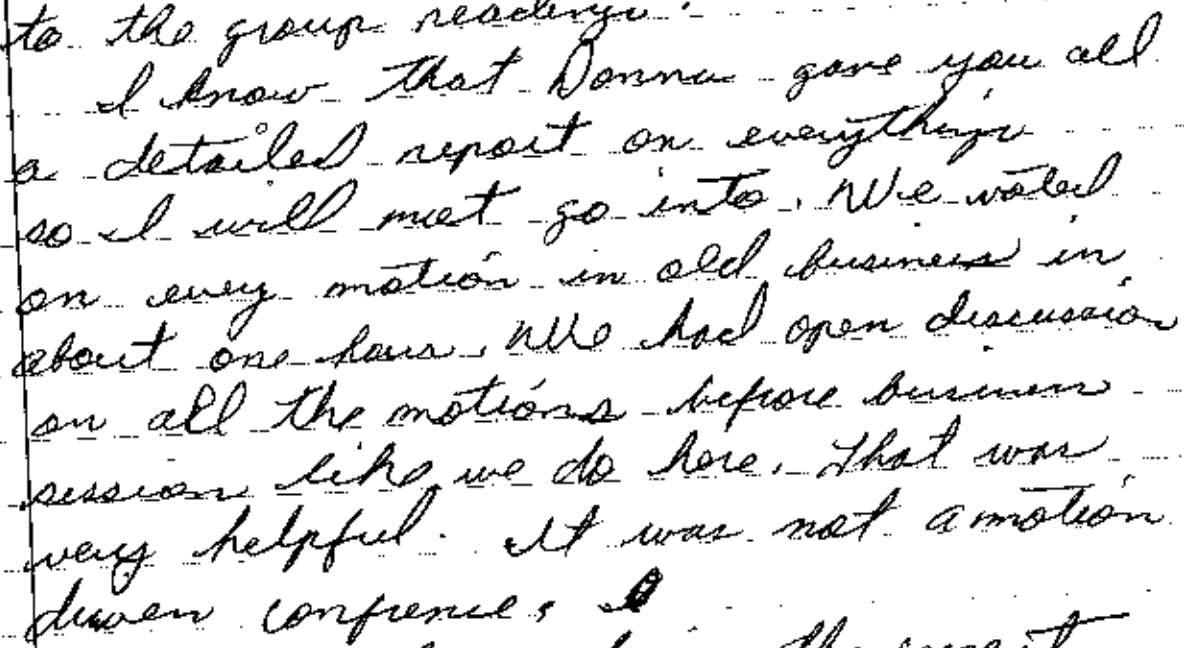 to the group readings.
I know that Donna gave you all
a detailed report on everything
so I will not go into. We voted
on every motion in old business in
about one hour. We had open discussion
on all the motions before business
session like we do here. That was
very helpful. It was not a motion
driven confrence.
the